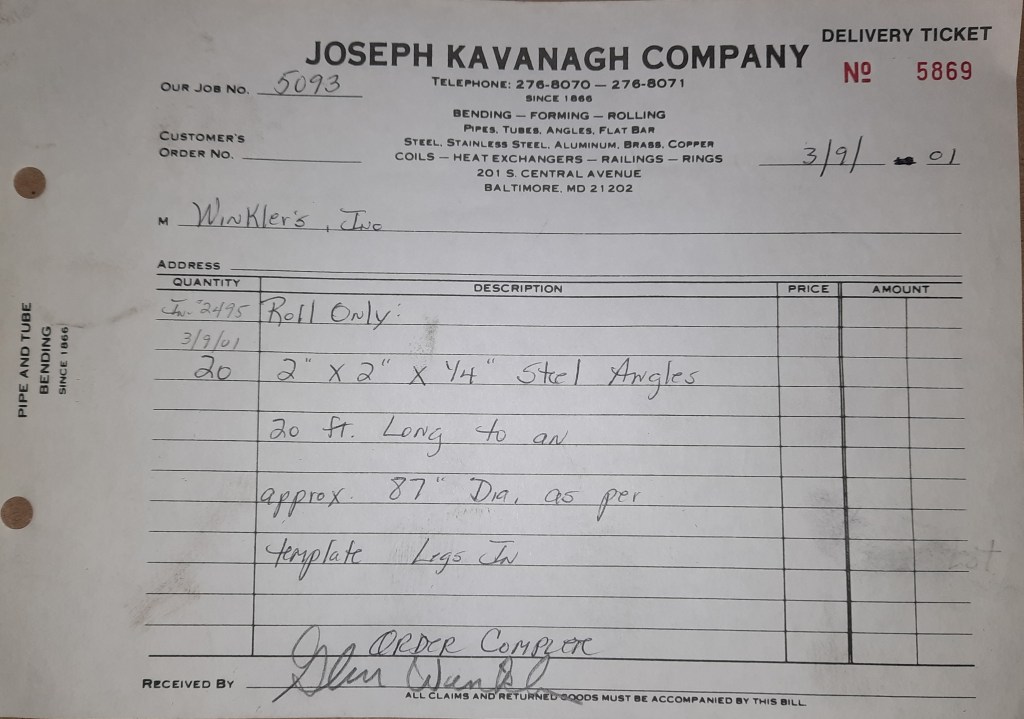 DELIVERY TICKET
JOSEPH KAVANAGH COMPANY
Nº 5869
OUR JOB NO. 5093
TELEPHONE: 276-8070 — 276-8071
SINCE 1866
BENDING — FORMING — ROLLING
PIPES, TUBES, ANGLES, FLAT BAR
CUSTOMER'S
ORDER NO.
STEEL, STAINLESS STEEL, ALUMINUM, BRASS, COPPER
COILS — HEAT EXCHANGERS — RAILINGS — RINGS
3/9/ 01
201 S. CENTRAL AVENUE
BALTIMORE, MD 21202
M Winkler's, Inc
ADDRESS
QUANTITY DESCRIPTION PRICE AMOUNT
In. #2495 Roll Only:
3/9/01
20 2" x 2" x 1/4" Steel Angles
20 ft. Long to an
approx. 87" Dia. as per
template Legs In
ORDER COMPLETE
RECEIVED BY Glen
ALL CLAIMS AND RETURNED GOODS MUST BE ACCOMPANIED BY THIS BILL
PIPE AND TUBE
BENDING
SINCE 1866